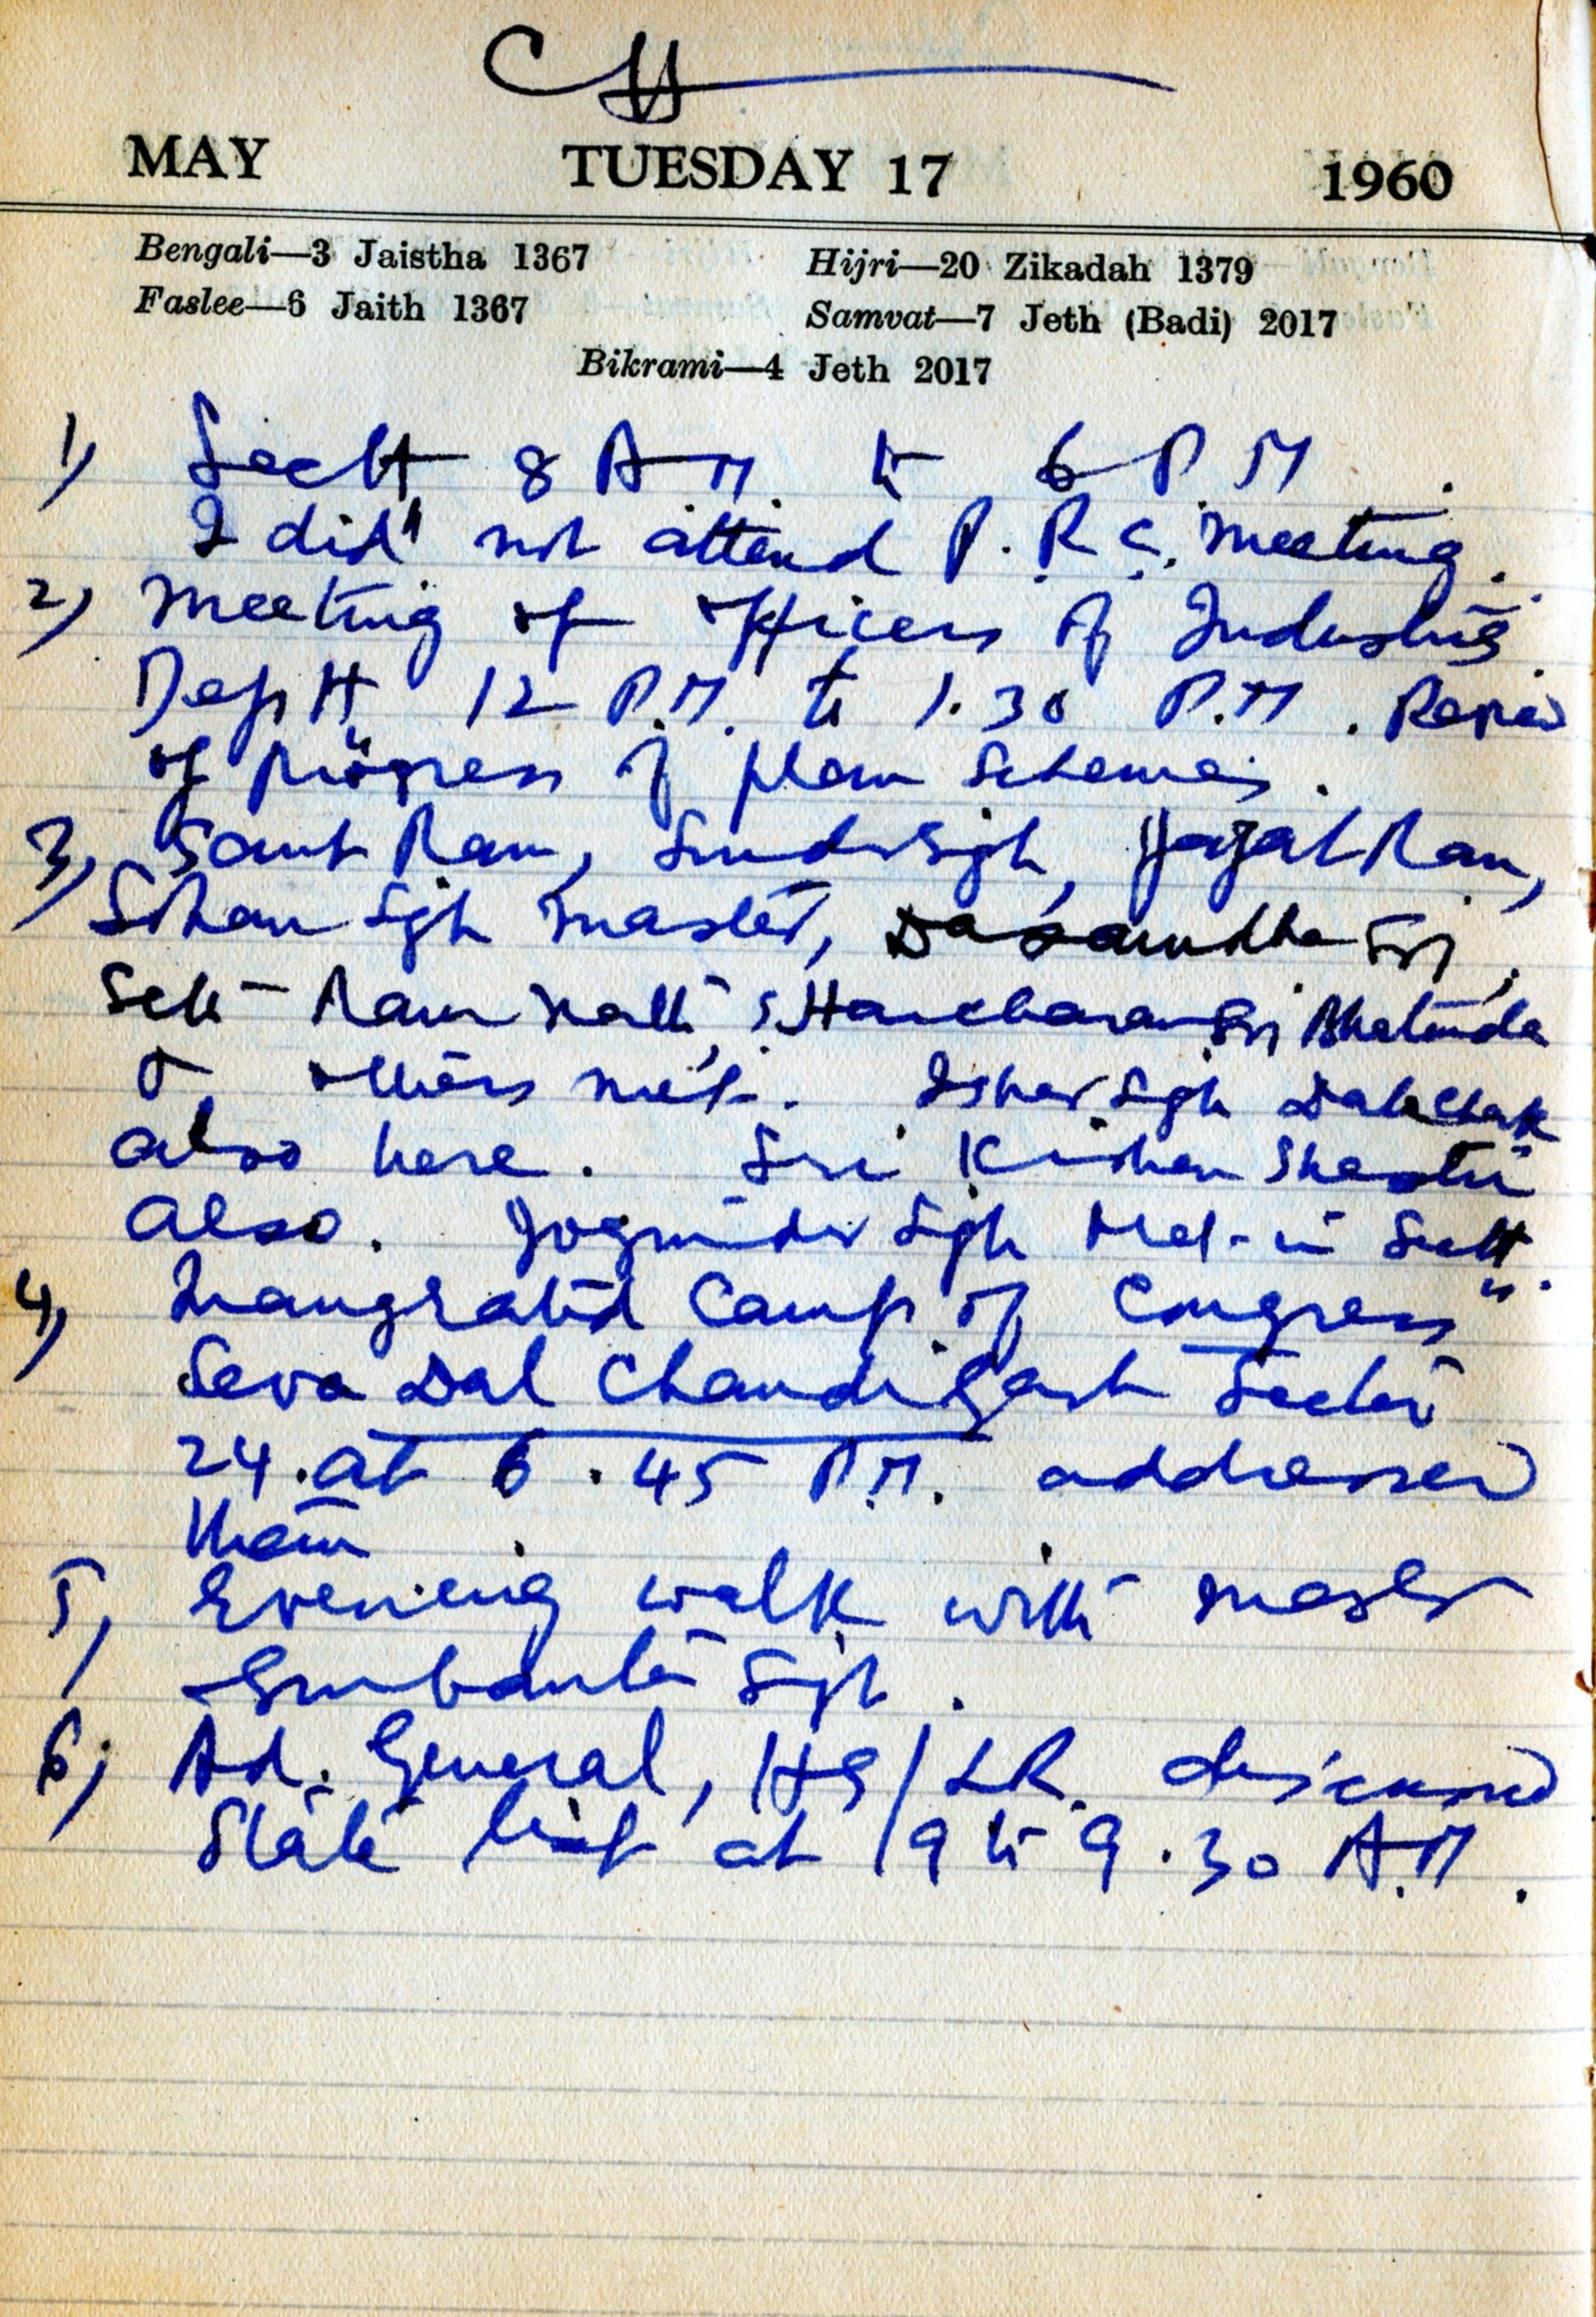 CH
MAY TUESDAY 17 1960
Bengali—3 Jaistha 1367 Hijri—20 Zikadah 1379
Faslee—6 Jaith 1367 Samvat—7 Jeth (Badi) 2017
Bikrami—4 Jeth 2017
1) Sectt 8 A.M. to 6 P.M.
I did not attend P.R.C. meeting.
2) Meeting of officers of Industries
Deptt. 12 P.M. to 1.30 P.M. Review
of progress of plan schemes.
3) Sant Ram, Sunder Sgh, Jagat Ram,
Sohan Sgh Master, Dasaundha Sgh,
Seth Ram Nath, S. Harcharan Sgh Bhatinda
& others met. Isher Sgh
also here. Sri Krishan Shastri
also. Joginder Sgh in Sectt.
4) Inaugrated Camp of Congress
Seva Dal Chandigarh Sector
24. at 6.45 P.M. addressed
them
5) Evening walk with Master
Gurbanta Sgh.
6) Ad. General, HS/LR. discussed
State at 9 to 9.30 A.M.